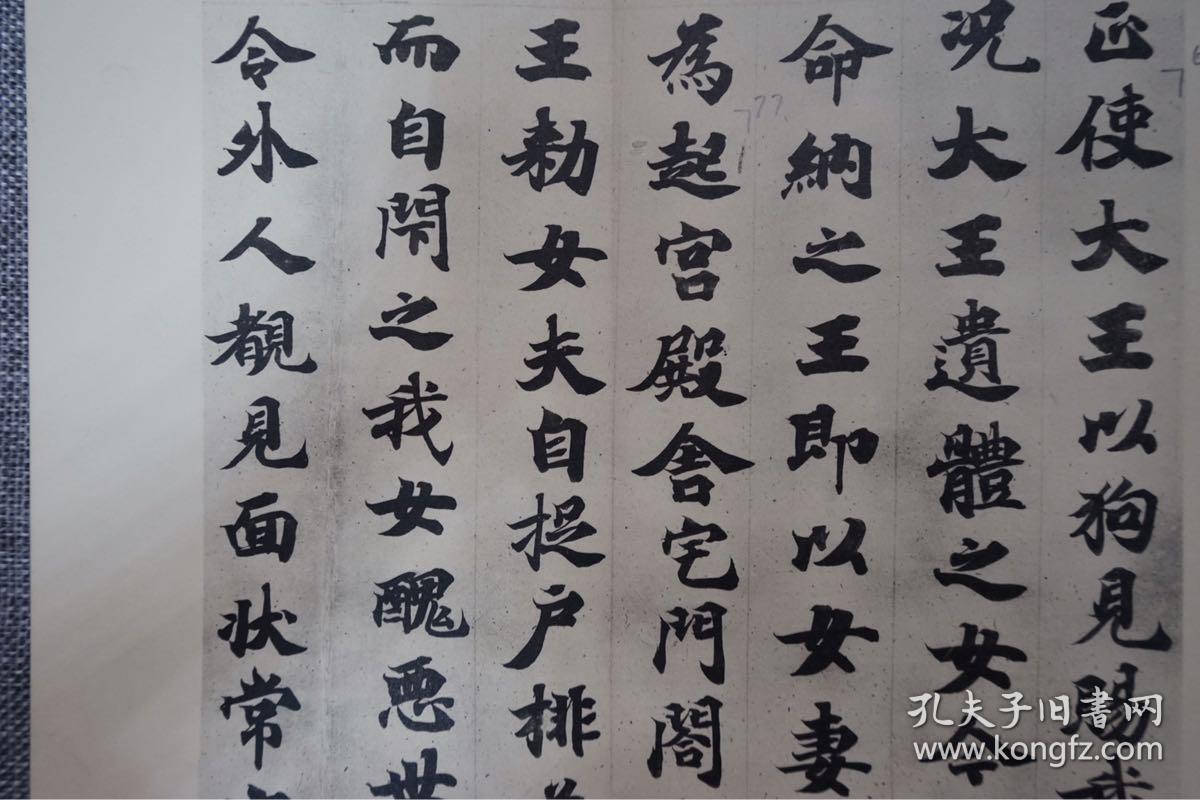 正使大王以狗見賜
况大王遺體之女今
命納之王即以女妻
為起宫殿舍宅門閤
王勑女夫自捉户排
而自閇之我女醜恶世
令外人覩見面状常
777
孔夫子旧书网
www.kongfz.com